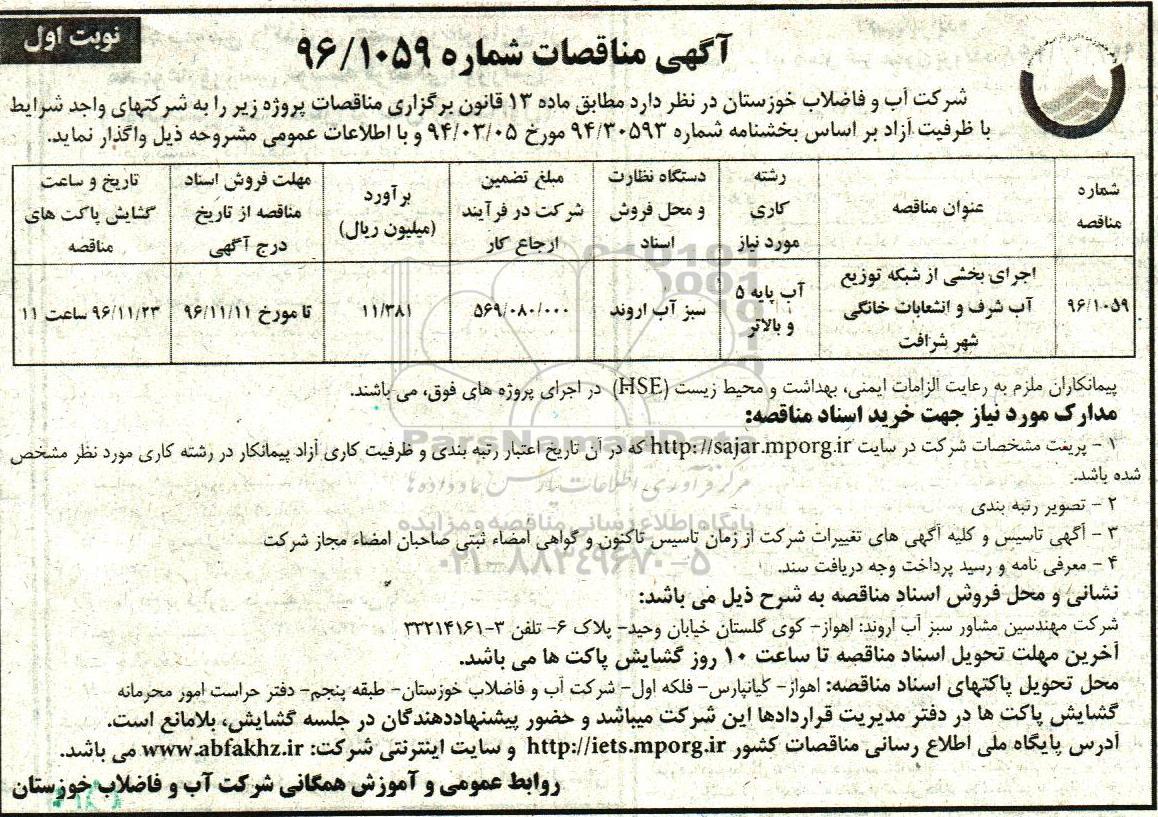 نوبت اول
آگهی مناقصات شماره ۹۶/۱۰۵۹
شرکت آب و فاضلاب خوزستان در نظر دارد مطابق ماده ۱۳ قانون برگزاری مناقصات پروژه زیر را به شرکتهای واجد شرایط
با ظرفیت آزاد بر اساس بخشنامه شماره ۹۴/۳۰۵۹۳ مورخ ۹۴/۰۳/۰۵ و با اطلاعات عمومی مشروحه ذیل واگذار نماید.
شماره
مناقصه
عنوان مناقصه
رشته
کاری
مورد نیاز
دستگاه نظارت
و محل فروش
اسناد
مبلغ تضمین
شرکت در فرآیند
ارجاع کار
برآورد
(میلیون ریال)
مهلت فروش اسناد
مناقصه از تاریخ
درج آگهی
تاریخ و ساعت
گشایش پاکت های
مناقصه
۹۶/۱۰۵۹
اجرای بخشی از شبکه توزیع
آب شرف و انشعابات خانگی
شهر شرافت
آب پایه ۵
و بالاتر
سبز آب اروند
۵۶۹/۰۸۰/۰۰۰
۱۱/۳۸۱
تا مورخ ۹۶/۱۱/۱۱
۹۶/۱۱/۲۳ ساعت ۱۱
پیمانکاران ملزم به رعایت الزامات ایمنی، بهداشت و محیط زیست (HSE) در اجرای پروژه های فوق، می باشند.
مدارک مورد نیاز جهت خرید اسناد مناقصه:
۱ - پرینت مشخصات شرکت در سایت http://sajar.mporg.ir که در آن تاریخ اعتبار رتبه بندی و ظرفیت کاری آزاد پیمانکار در رشته کاری مورد نظر مشخص
شده باشد.
۲ - تصویر رتبه بندی
۳ - آگهی تاسیس و کلیه آگهی های تغییرات شرکت از زمان تاسیس تاکنون و گواهی امضاء ثبتی صاحبان امضاء مجاز شرکت
۴ - معرفی نامه و رسید پرداخت وجه دریافت سند.
نشانی و محل فروش اسناد مناقصه به شرح ذیل می باشد:
شرکت مهندسین مشاور سبز آب اروند: اهواز- کوی گلستان خیابان وحید- پلاک ۶- تلفن ۳-۳۳۲۱۴۱۶۱
آخرین مهلت تحویل اسناد مناقصه تا ساعت ۱۰ روز گشایش پاکت ها می باشد.
محل تحویل پاکتهای اسناد مناقصه: اهواز- کیانپارس- فلکه اول- شرکت آب و فاضلاب خوزستان- طبقه پنجم- دفتر حراست امور محرمانه
گشایش پاکت ها در دفتر مدیریت قراردادها این شرکت میباشد و حضور پیشنهاددهندگان در جلسه گشایش، بلامانع است.
آدرس پایگاه ملی اطلاع رسانی مناقصات کشور http://iets.mporg.ir و سایت اینترنتی شرکت: www.abfakhz.ir می باشد.
روابط عمومی و آموزش همگانی شرکت آب و فاضلاب خوزستان
ParsNamadData
مرکز فرآوری اطلاعات پارس نماد داده ها
پایگاه اطلاع رسانی مناقصه و مزایده
۰۲۱-۸۸۳۴۹۶۷۰-۵